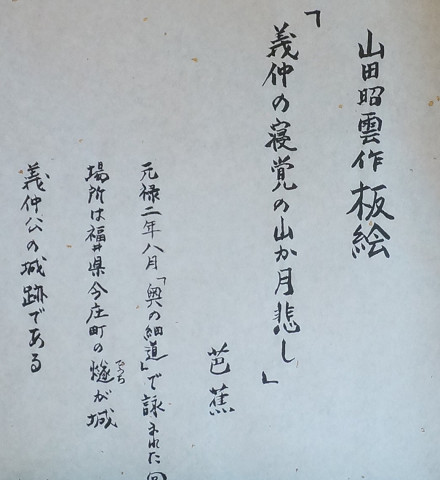 山田昭雲作 板絵
「義仲の寝覚の山か月悲し」
芭蕉
元禄二年八月「奥の細道」で詠まれた
場所は福井県今庄町の燧が城
ひうち
義仲公の城跡である